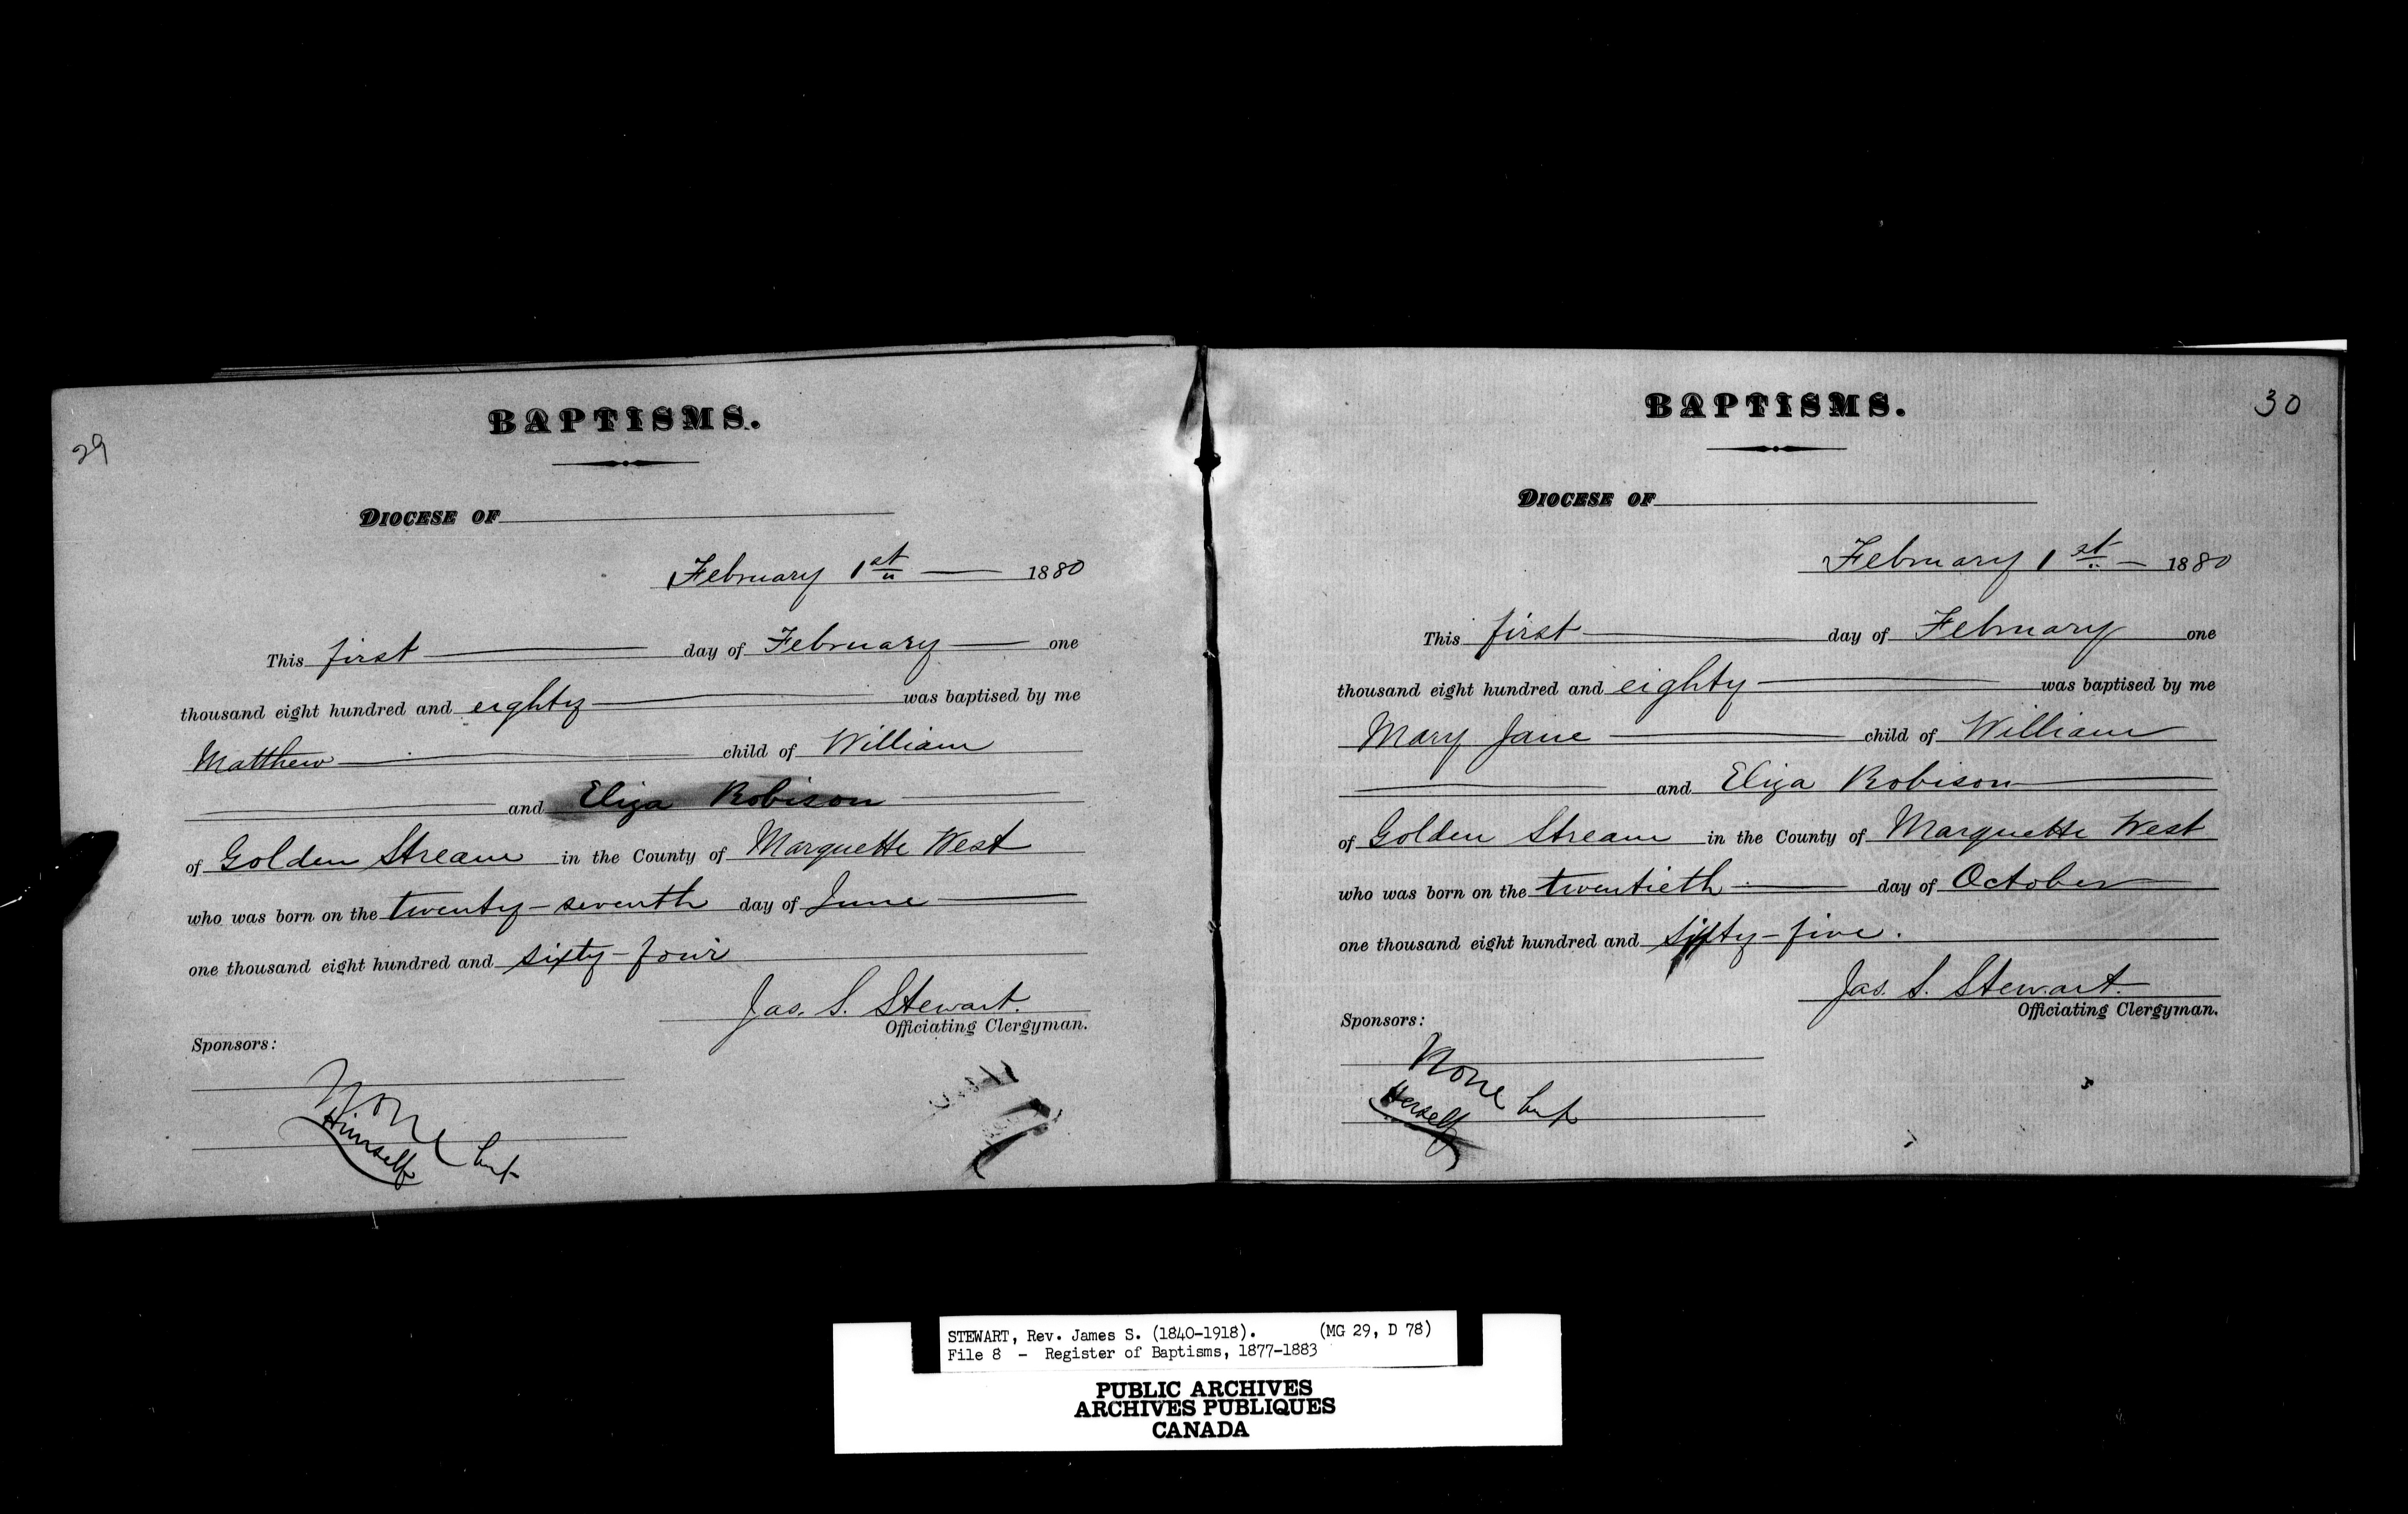 29
BAPTISMS.
DIOCESE OF
February 1st 1880
This first day of February one
thousand eight hundred and eighty was baptised by me
Matthew child of William
and Eliza Robison
of Golden Stream in the County of Marquette West
who was born on the twenty-seventh day of June
one thousand eight hundred and sixty-four
Jas. S. Stewart.
Officiating Clergyman.
Sponsors:
None but
Himself
30
BAPTISMS.
DIOCESE OF
February 1st 1880
This first day of February one
thousand eight hundred and eighty was baptised by me
Mary Jane child of William
and Eliza Robison
of Golden Stream in the County of Marquette West
who was born on the twentieth day of October
one thousand eight hundred and sixty-five.
Jas. S. Stewart.
Officiating Clergyman.
Sponsors:
None but
Herself
STEWART, Rev. James S. (1840-1918). (MG 29, D 78)
File 8 - Register of Baptisms, 1877-1883
PUBLIC ARCHIVES
ARCHIVES PUBLIQUES
CANADA